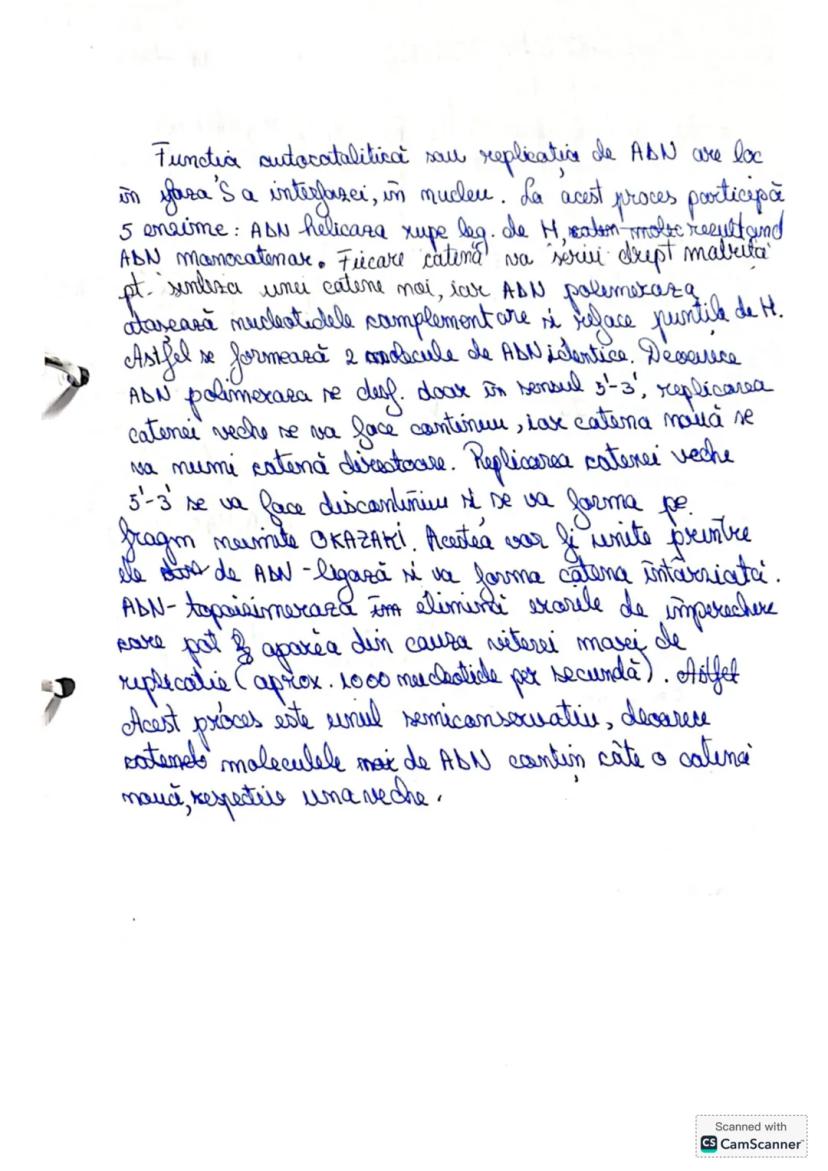 Functia autocatalitică sau replicația de ADN are loc
în faza S a interfazei, în nucleu. La acest proces participă
5 enzime: ADN helicaza rupe leg. de H, rezultând
ADN monocatenar. Fiecare catenă va servi drept matriță
pt. sinteza unei catene noi, iar ADN polimeraza
atașează nucleotidele complementare și reface punțile de H.
Astfel se formează 2 molecule de ADN identice. Deoarece
ADN polimeraza se desf. doar în sensul 5'-3', replicarea
catenei veche se va face continuu, iar catena nouă se
va numi catenă directoare. Replicarea catenei veche
5'-3' se va face discontinuu și se va forma pe
fragm numite OKAZAKI. Acestea vor fi unite printre
ele de ADN-ligază și va forma catena întârziată.
ADN-topoizimerază elimină erorile de împerechere
care pot apărea din cauza vitezei masei de
replicatie (aprox. 1000 nucleotide per secundă). Astfel
Acest proces este unul semiconservativ, deoarece
moleculele noi de ADN conțin câte o catenă
nouă, respectiv una veche.
Scanned with
CS CamScanner